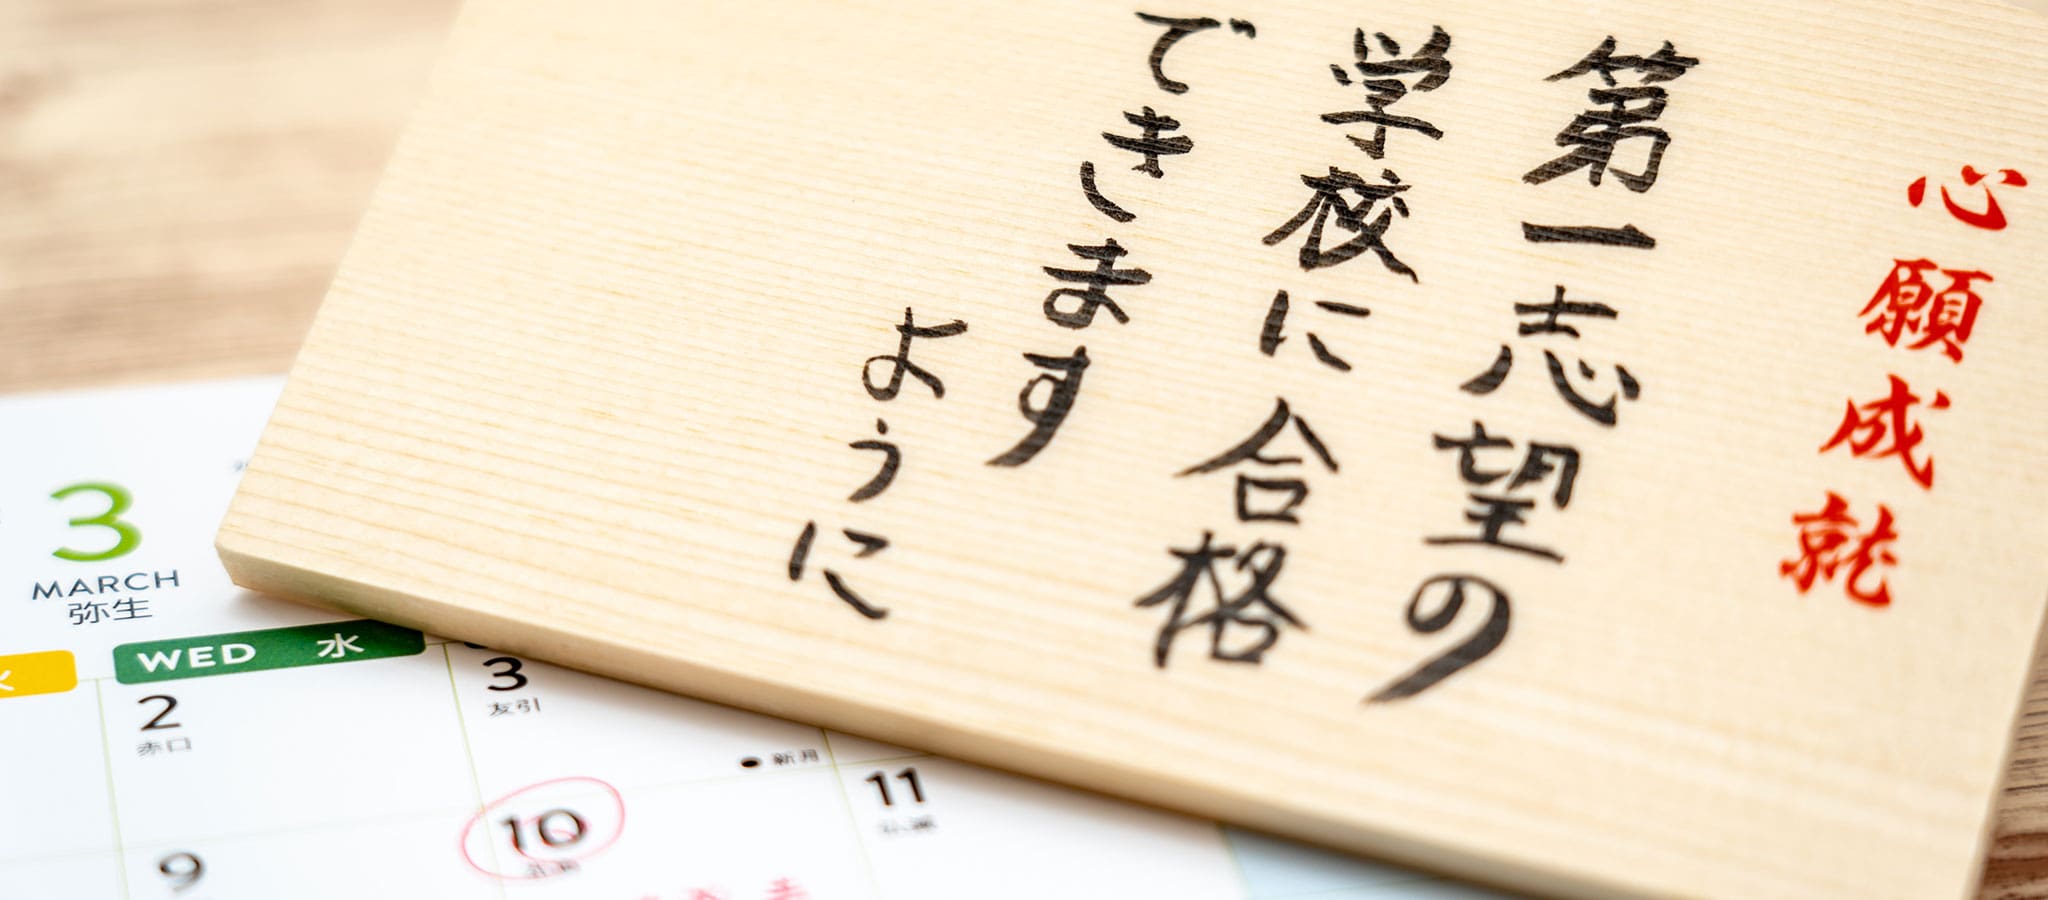 心願成就
第一志望の
学校に合格
できます
ように
3
MARCH
弥生
WED 水
2
赤口
3
友引
● 新月
9
10
11